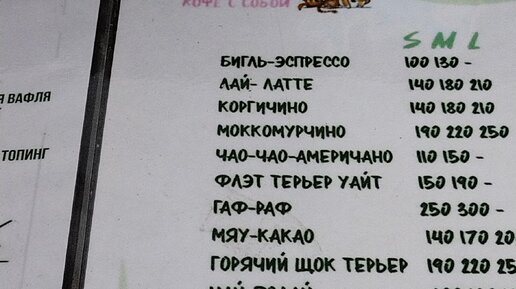 КОФЕ С СОБОЙ
S M L
БИГЛЬ-ЭСПРЕССО 100 130 -
ЛАЙ- ЛАТТЕ 140 180 210
КОРГИЧИНО 140 180 210
МОККОМУРЧИНО 190 220 250
ЧАО-ЧАО-АМЕРИЧАНО 110 150 -
ФЛЭТ ТЕРЬЕР УАЙТ 150 190 -
ГАФ-РАФ 250 300 -
МЯУ-КАКАО 140 170 20
ГОРЯЧИЙ ЩОК ТЕРЬЕР 190 220 25
Я ВАФЛЯ
ТОПИНГ